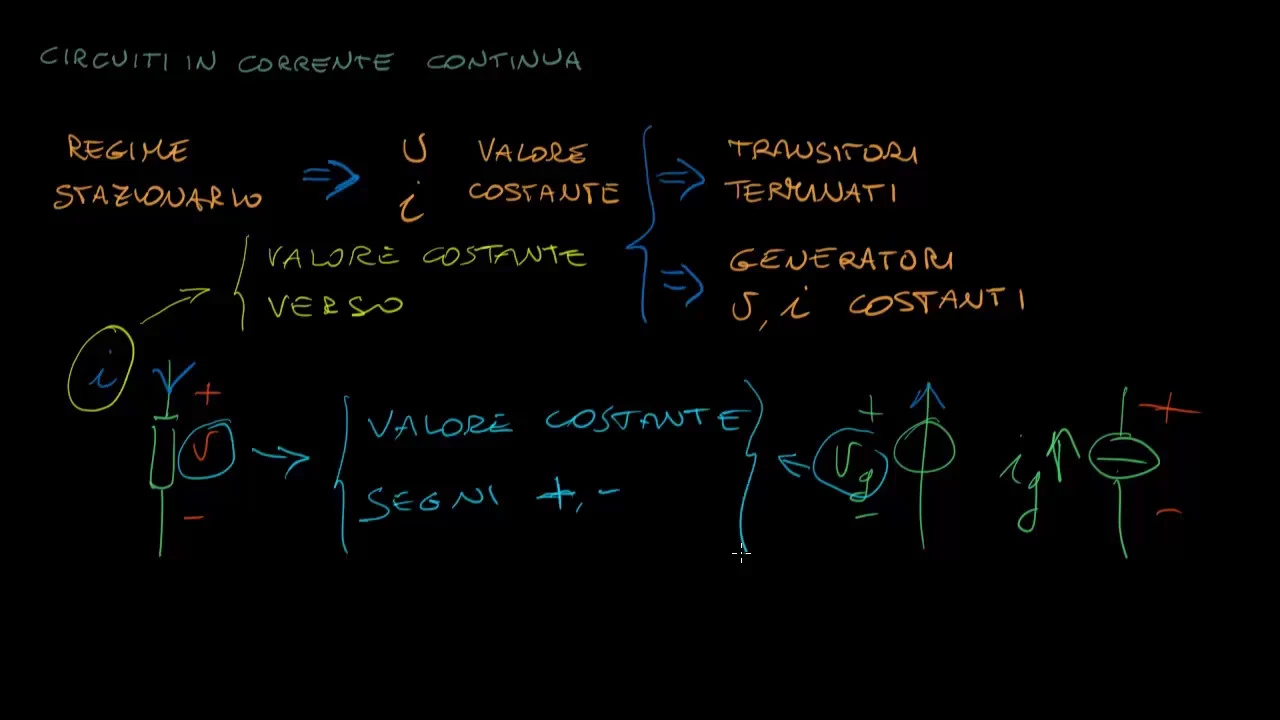 CIRCUITI IN CORRENTE CONTINUA
REGIME STAZIONARIO ⇒ v i VALORE COSTANTE
⇒ TRANSITORI TERMINATI
⇒ GENERATORI v, i COSTANTI
i → VALORE COSTANTE
VERSO
+
v
-
VALORE COSTANTE
SEGNI +, -
+
vg
-
ig
+
-